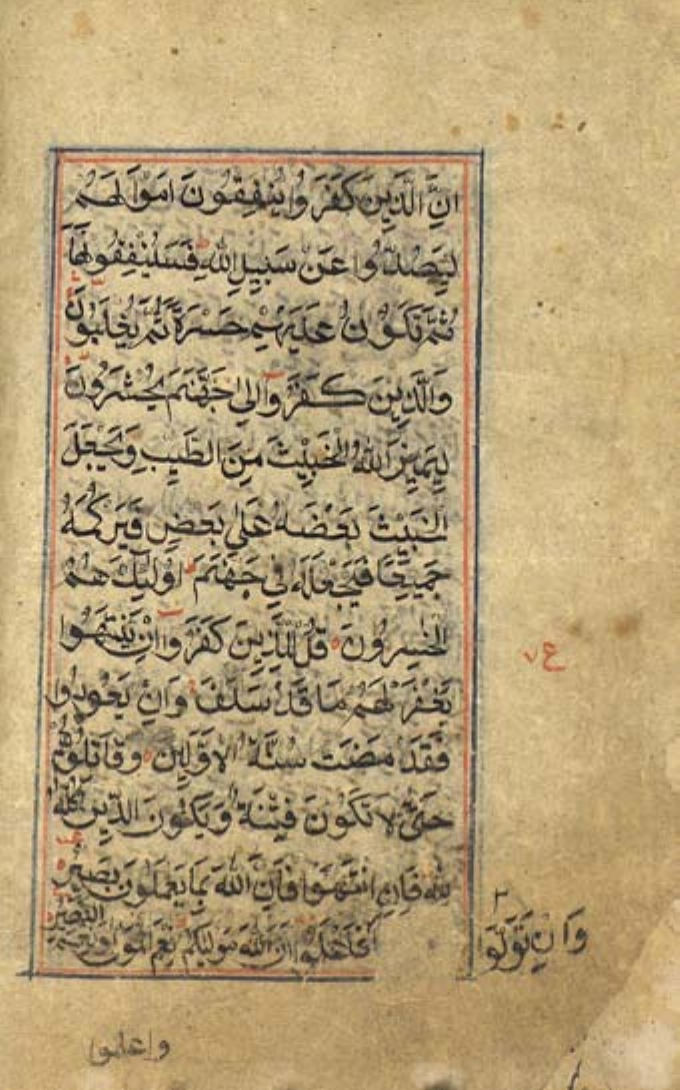 اِنَّ الَّذِينَ كَفَرُوا يُنْفِقُونَ اَمْوَالَهُمْ
لِيَصُدُّوا عَنْ سَبِيلِ اللّٰهِ فَسَيُنْفِقُونَهَا
ثُمَّ تَكُونُ عَلَيْهِمْ حَسْرَةً ثُمَّ يُغْلَبُونَ
وَالَّذِينَ كَفَرُوا اِلٰى جَهَنَّمَ يُحْشَرُونَ
لِيَمِيزَ اللّٰهُ الْخَبِيثَ مِنَ الطَّيِّبِ وَيَجْعَلَ
الْخَبِيثَ بَعْضَهُ عَلٰى بَعْضٍ فَيَرْكُمَهُ
جَمِيعًا فَيَجْعَلَهُ فِي جَهَنَّمَ اُولٰئِكَ هُمُ
الْخٰسِرُونَ قُلْ لِلَّذِينَ كَفَرُوا اِنْ يَنْتَهُوا
يُغْفَرْ لَهُمْ مَا قَدْ سَلَفَ وَاِنْ يَعُودُوا
فَقَدْ مَضَتْ سُنَّةُ الْاَوَّلِينَ وَقَاتِلُوهُمْ
حَتّٰى لَا تَكُونَ فِتْنَةٌ وَيَكُونَ الدِّينُ كُلُّهُ
لِلّٰهِ فَاِنِ انْتَهَوْا فَاِنَّ اللّٰهَ بِمَا يَعْمَلُونَ بَصِيرٌ
وَاِنْ تَوَلَّوْا
فَاعْلَمُوا اَنَّ اللّٰهَ مَوْلٰيكُمْ نِعْمَ الْمَوْلٰى وَنِعْمَ
النَّصِيرُ
واعلموا